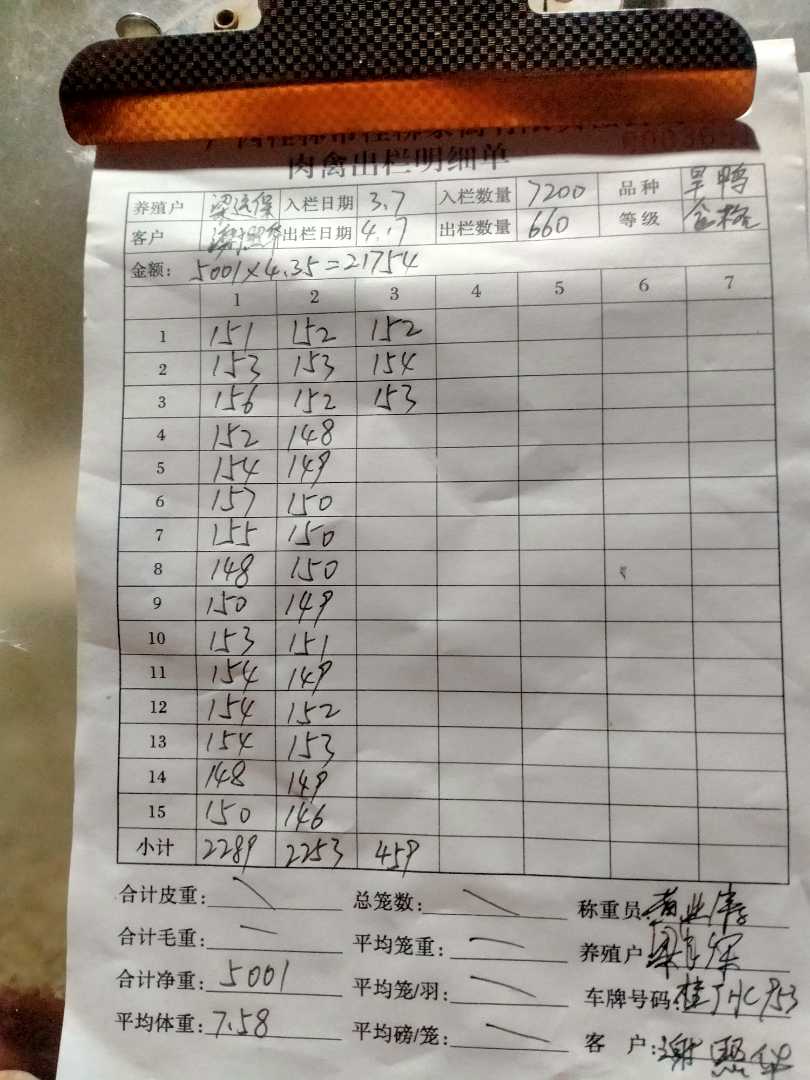 肉禽出栏明细单
养殖户 梁远保 入栏日期 3.7 入栏数量 7200 品种 旱鸭
客户 出栏日期 4.17 出栏数量 660 等级 合格
金额: 5001×4.35=21754
1 2 3 4 5 6 7
1 151 152 152
2 153 153 154
3 156 152 153
4 152 148
5 154 149
6 157 150
7 155 150
8 148 150
9 150 149
10 153 151
11 154 149
12 154 152
13 154 153
14 148 149
15 150 146
小计 2289 2253 459
合计皮重: 总笼数: 称重员:
合计毛重: 平均笼重: 养殖户:
合计净重: 5001 平均笼/羽: 车牌号码:
平均体重: 7.58 平均磅/笼: 客 户: